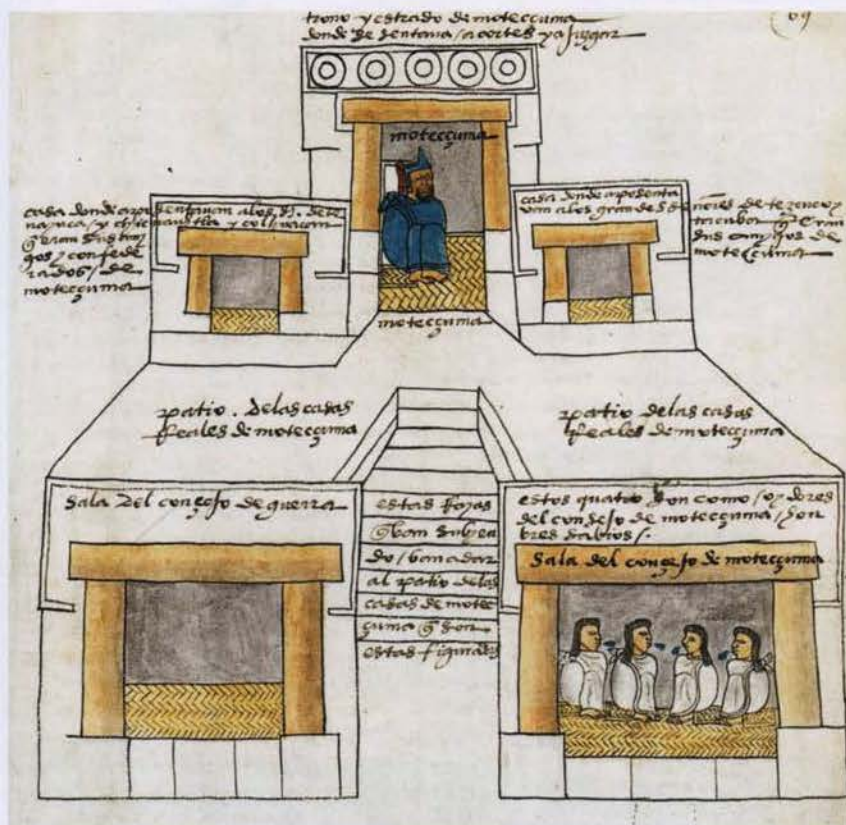 trono y estrado de motecçuma
donde se sentava a cortes y a juzgar
69
motecçuma
casa donde aposentavan a los s.s. de te
nayuca / y chicunautla / y colhuacan
q̃ eran sus ami
gos / y confede
rados / de
motecçuma
casa donde aposenta
van a los grandes señores de tezcuco y
tacuba q̃ eran
sus amigos de
motecçuma
motecçuma
patio . de las casas
Reales de motecçuma
patio de las casas
Reales de motecçuma
sala del consejo de guerra
estas Rayas
q̃ ban subien
do / ban a dar
al patio de las
casas de mote
cçuma q̃ son
estas figuradas
estos quatro son como / oydores
del consejo de motecçuma / hon
bres sabios /.
sala del consejo de motecçuma